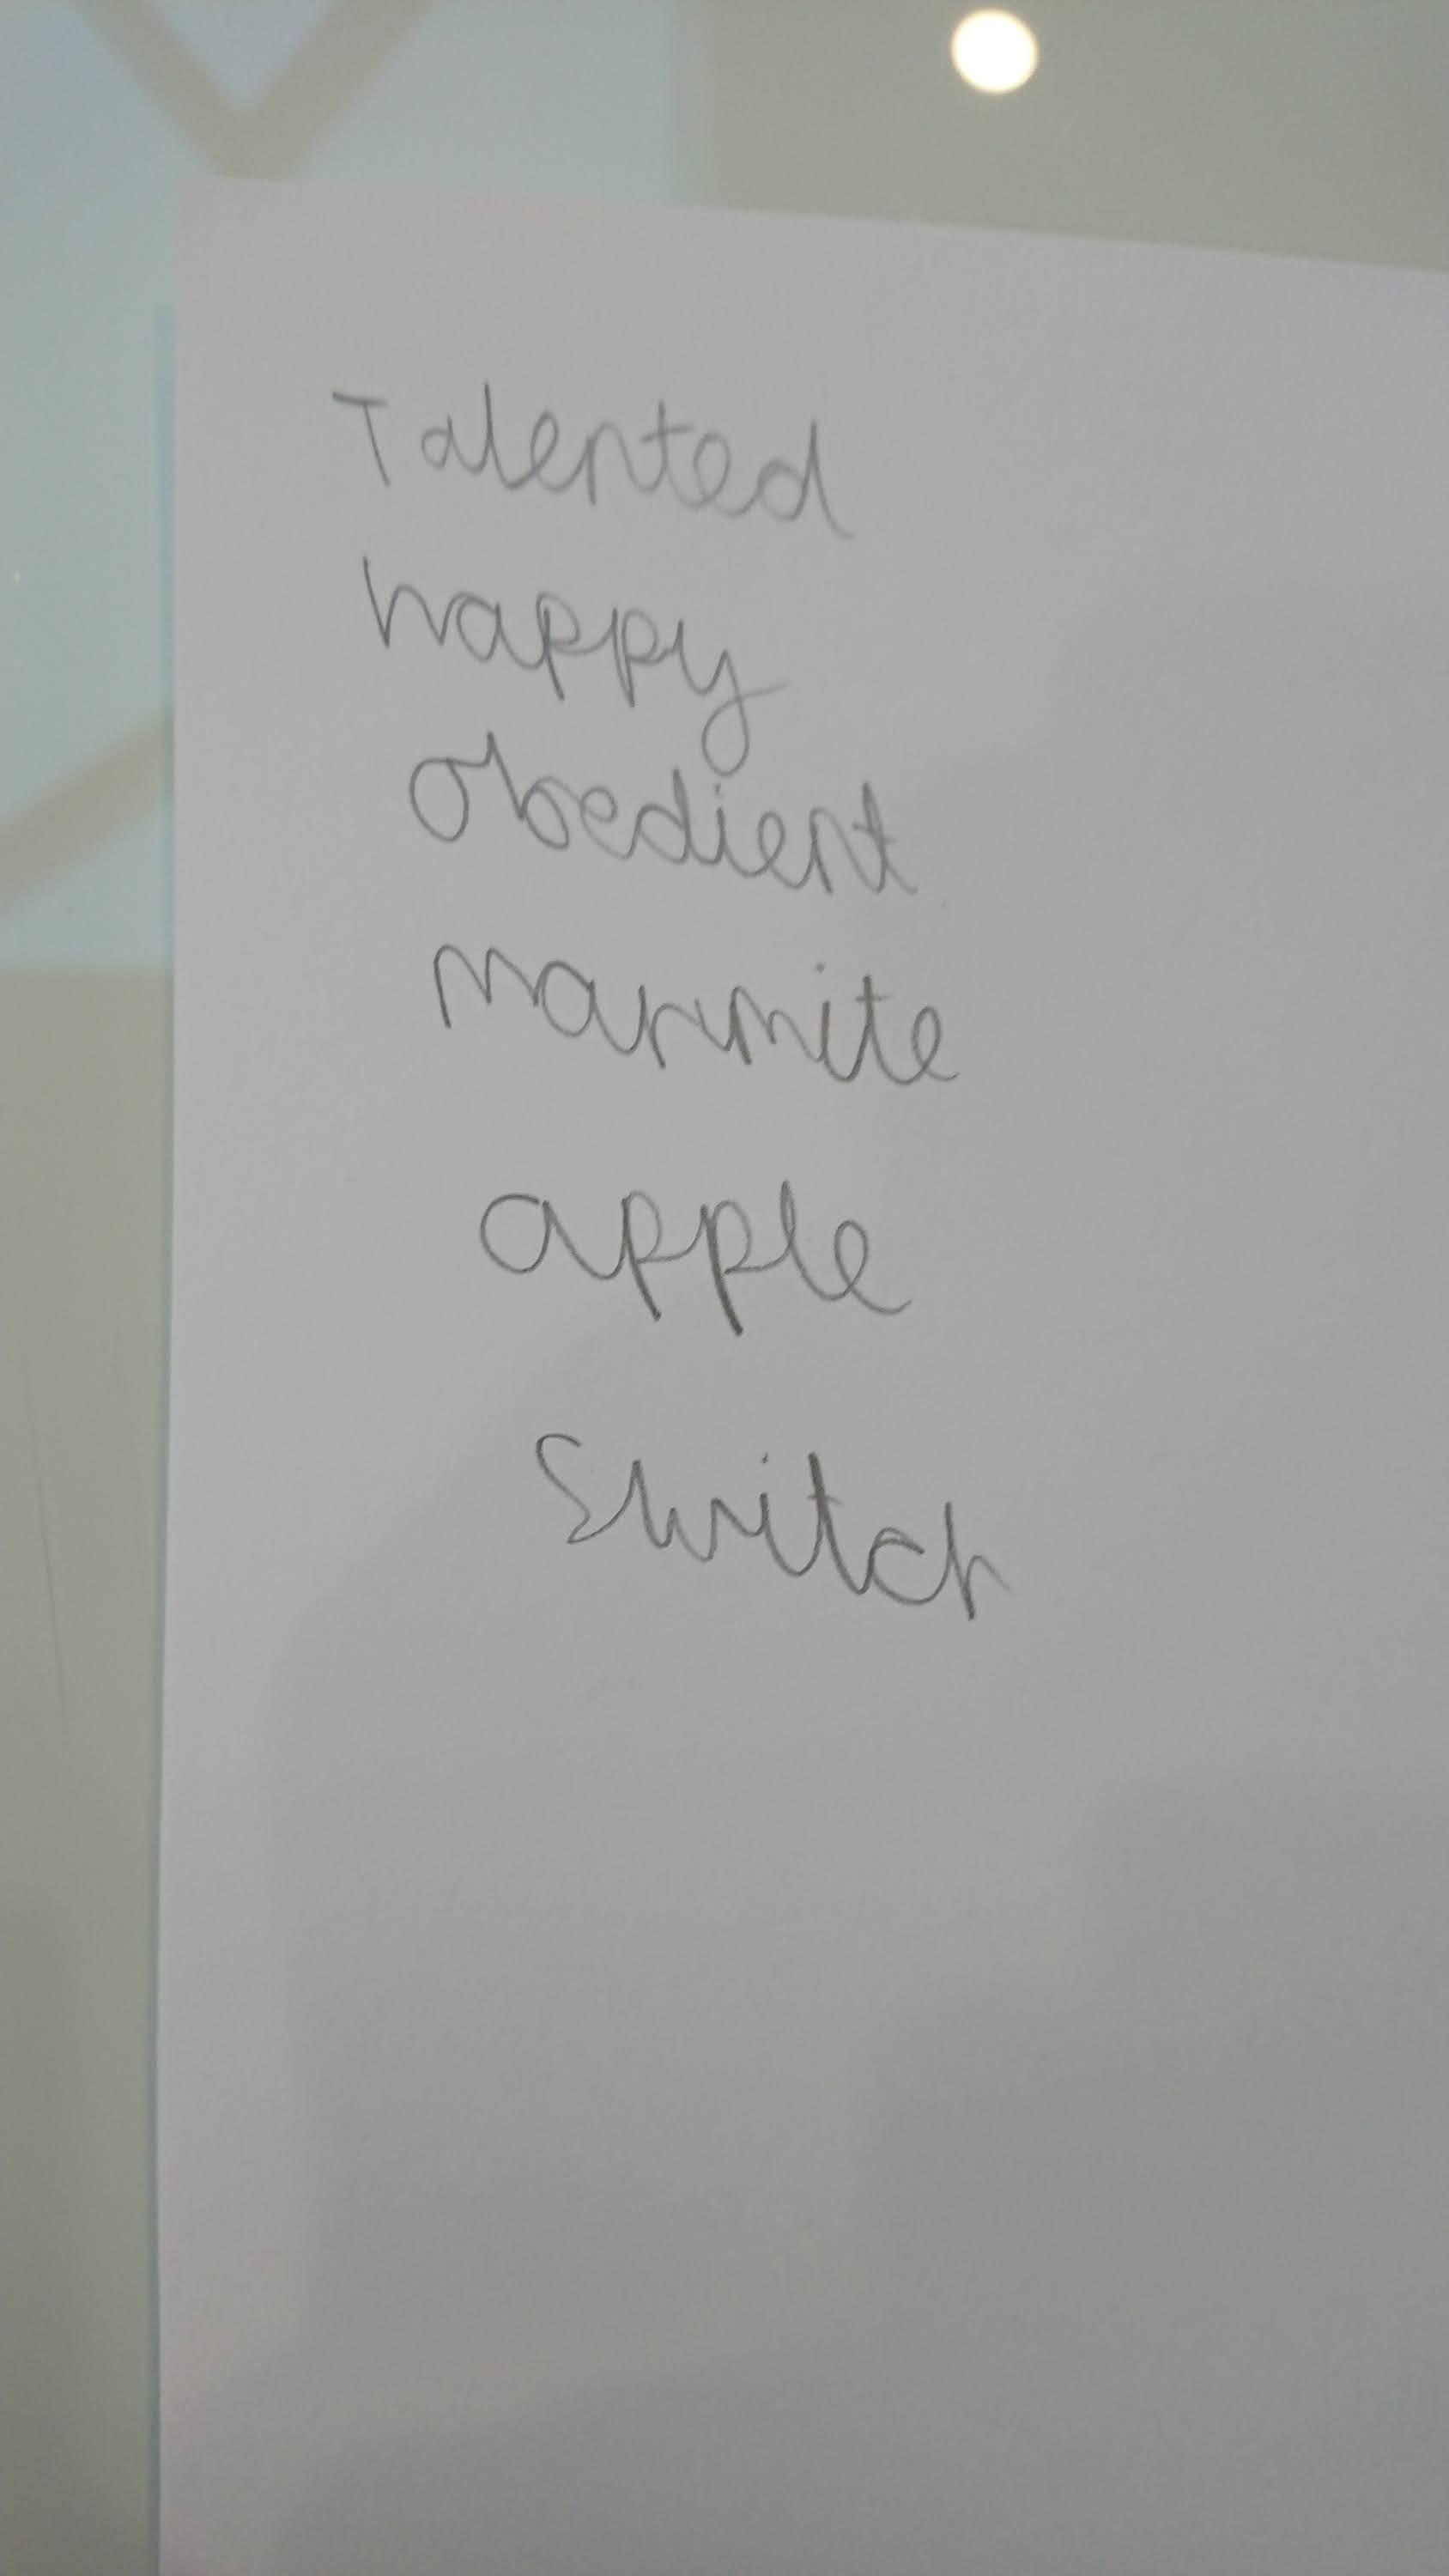 Talented
happy
obedient
marmite
apple
Switch